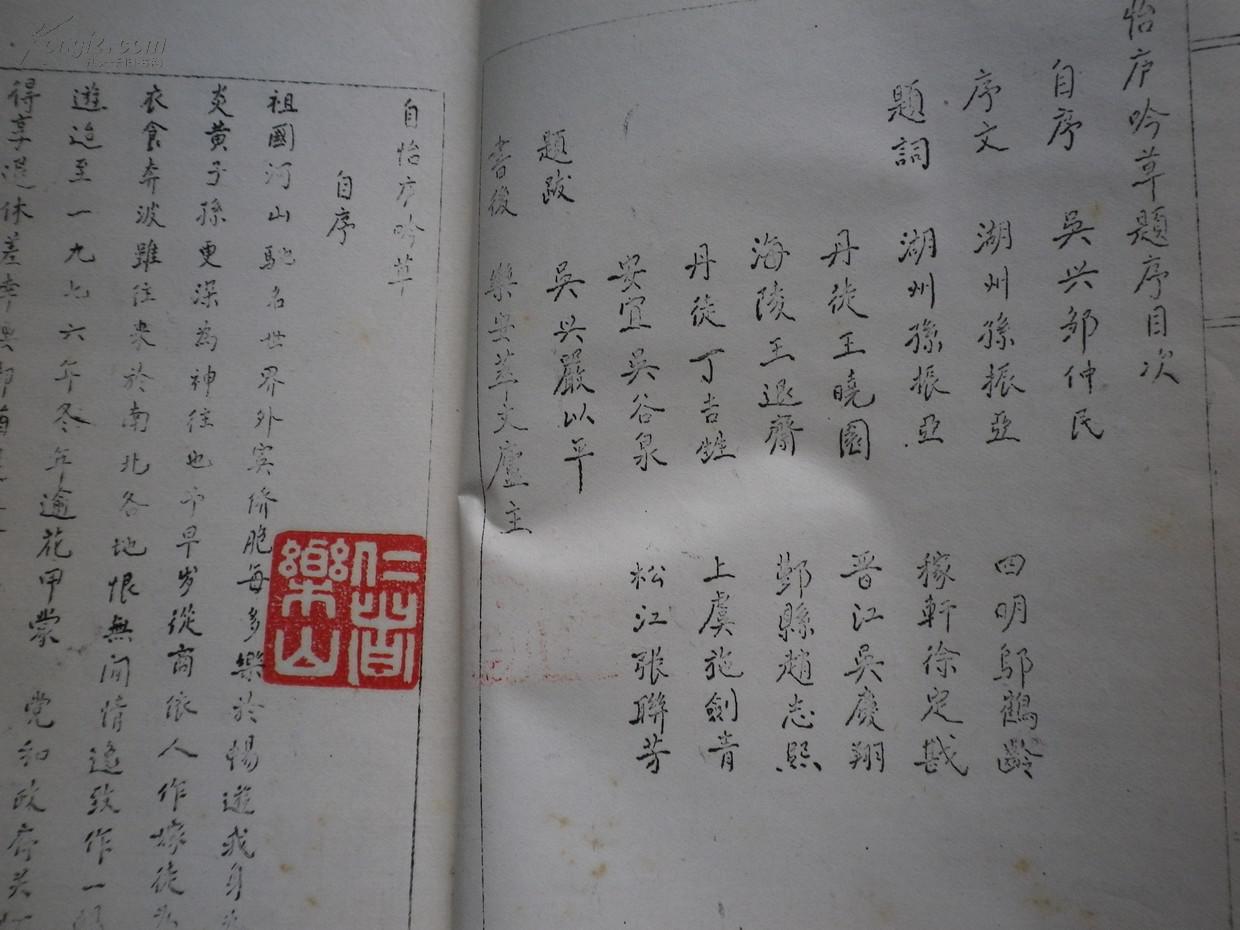 怡庐吟草題序目次
自序 吳兴邹仲民
序文 湖州孫振亞 四明邬鶴齡
題詞 湖州孫振亞 稼軒徐定戡
丹徒王曉園 晋江吳慶翔
海陵王退齋 鄞縣趙志熙
丹徒丁吉甡 上虞施劍青
安宜吳谷泉 松江張聯芳
題跋 吳兴嚴以平
書後 樂安萃文廬主
自怡庐吟草
自序
祖國河山馳名世界外賓侨胞每多樂於暢遊我身为
炎黄子孫更深為神往也予早岁從商依人作嫁徒为
衣食奔波雖往来於南北各地恨無闲情逸致作一
遊迨至一九七六年冬年逾花甲蒙 党和政府关
得享退休差幸
仁者樂山
Kongfz.com